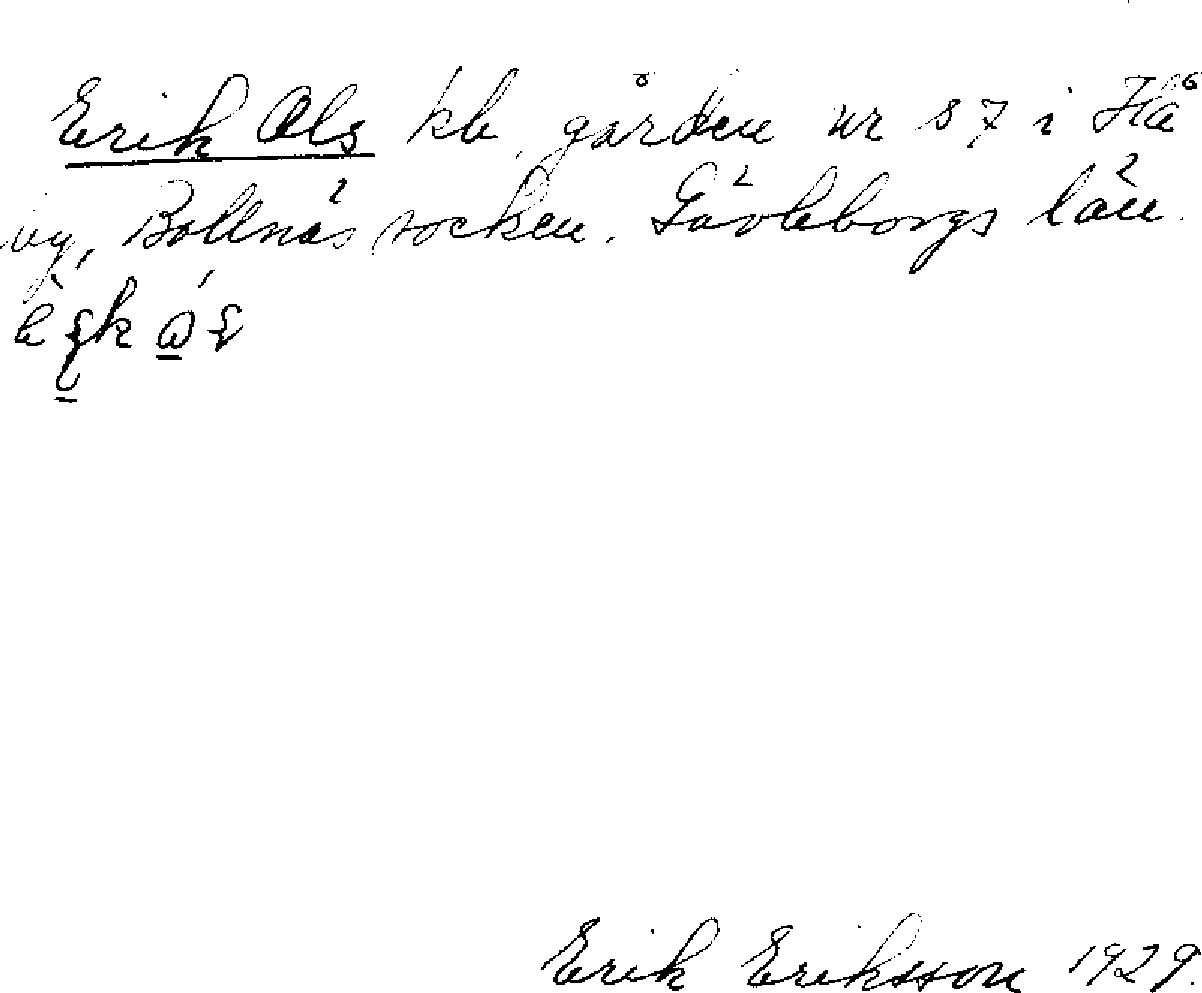 Erik Ols kb, gården nr 87 i Hå
vy, Bollnäs socken. Gävleborgs län.
Erik Eriksson 1929.